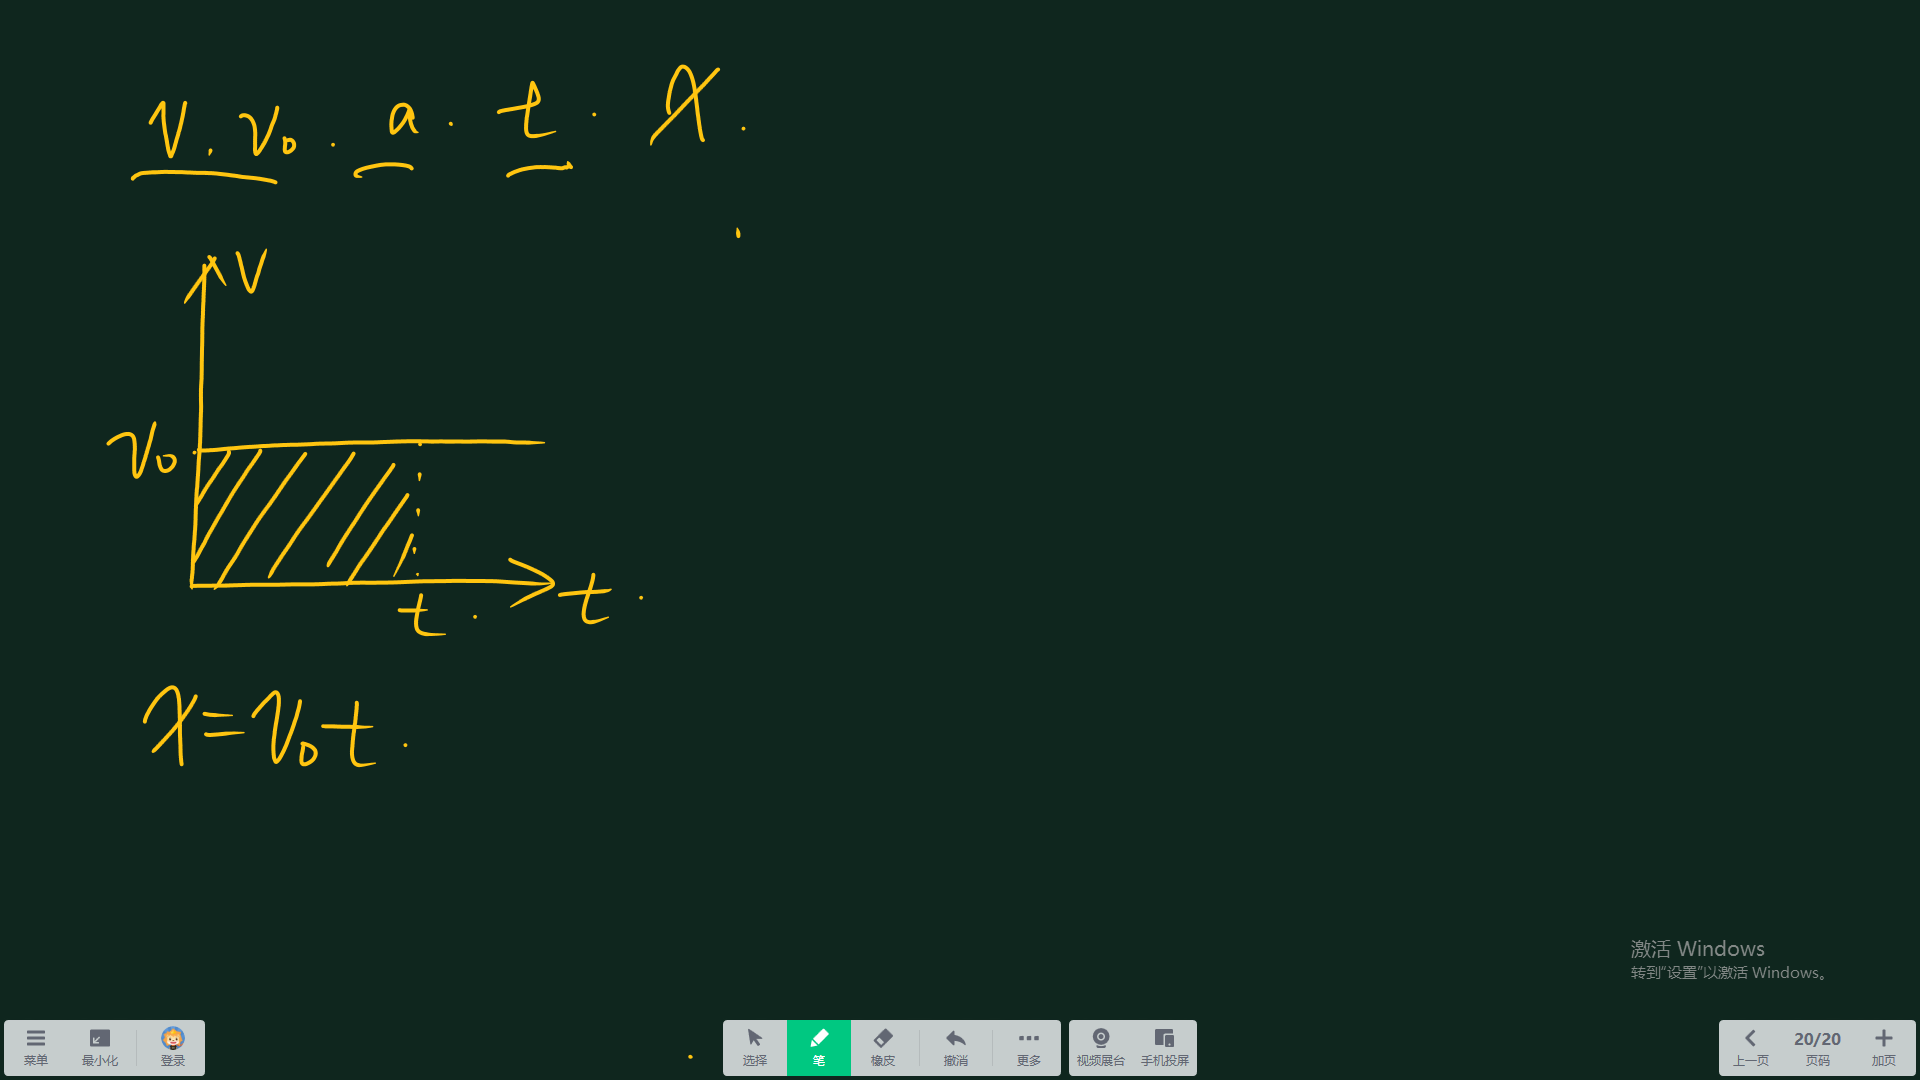 v. v₀. a. t. x.
v
v₀
t.
t.
x=v₀t.
激活 Windows
转到“设置”以激活 Windows。
菜单 最小化 登录 选择 笔 橡皮 撤消 更多 视频展台 手机投屏 上一页 20/20 页码 加页